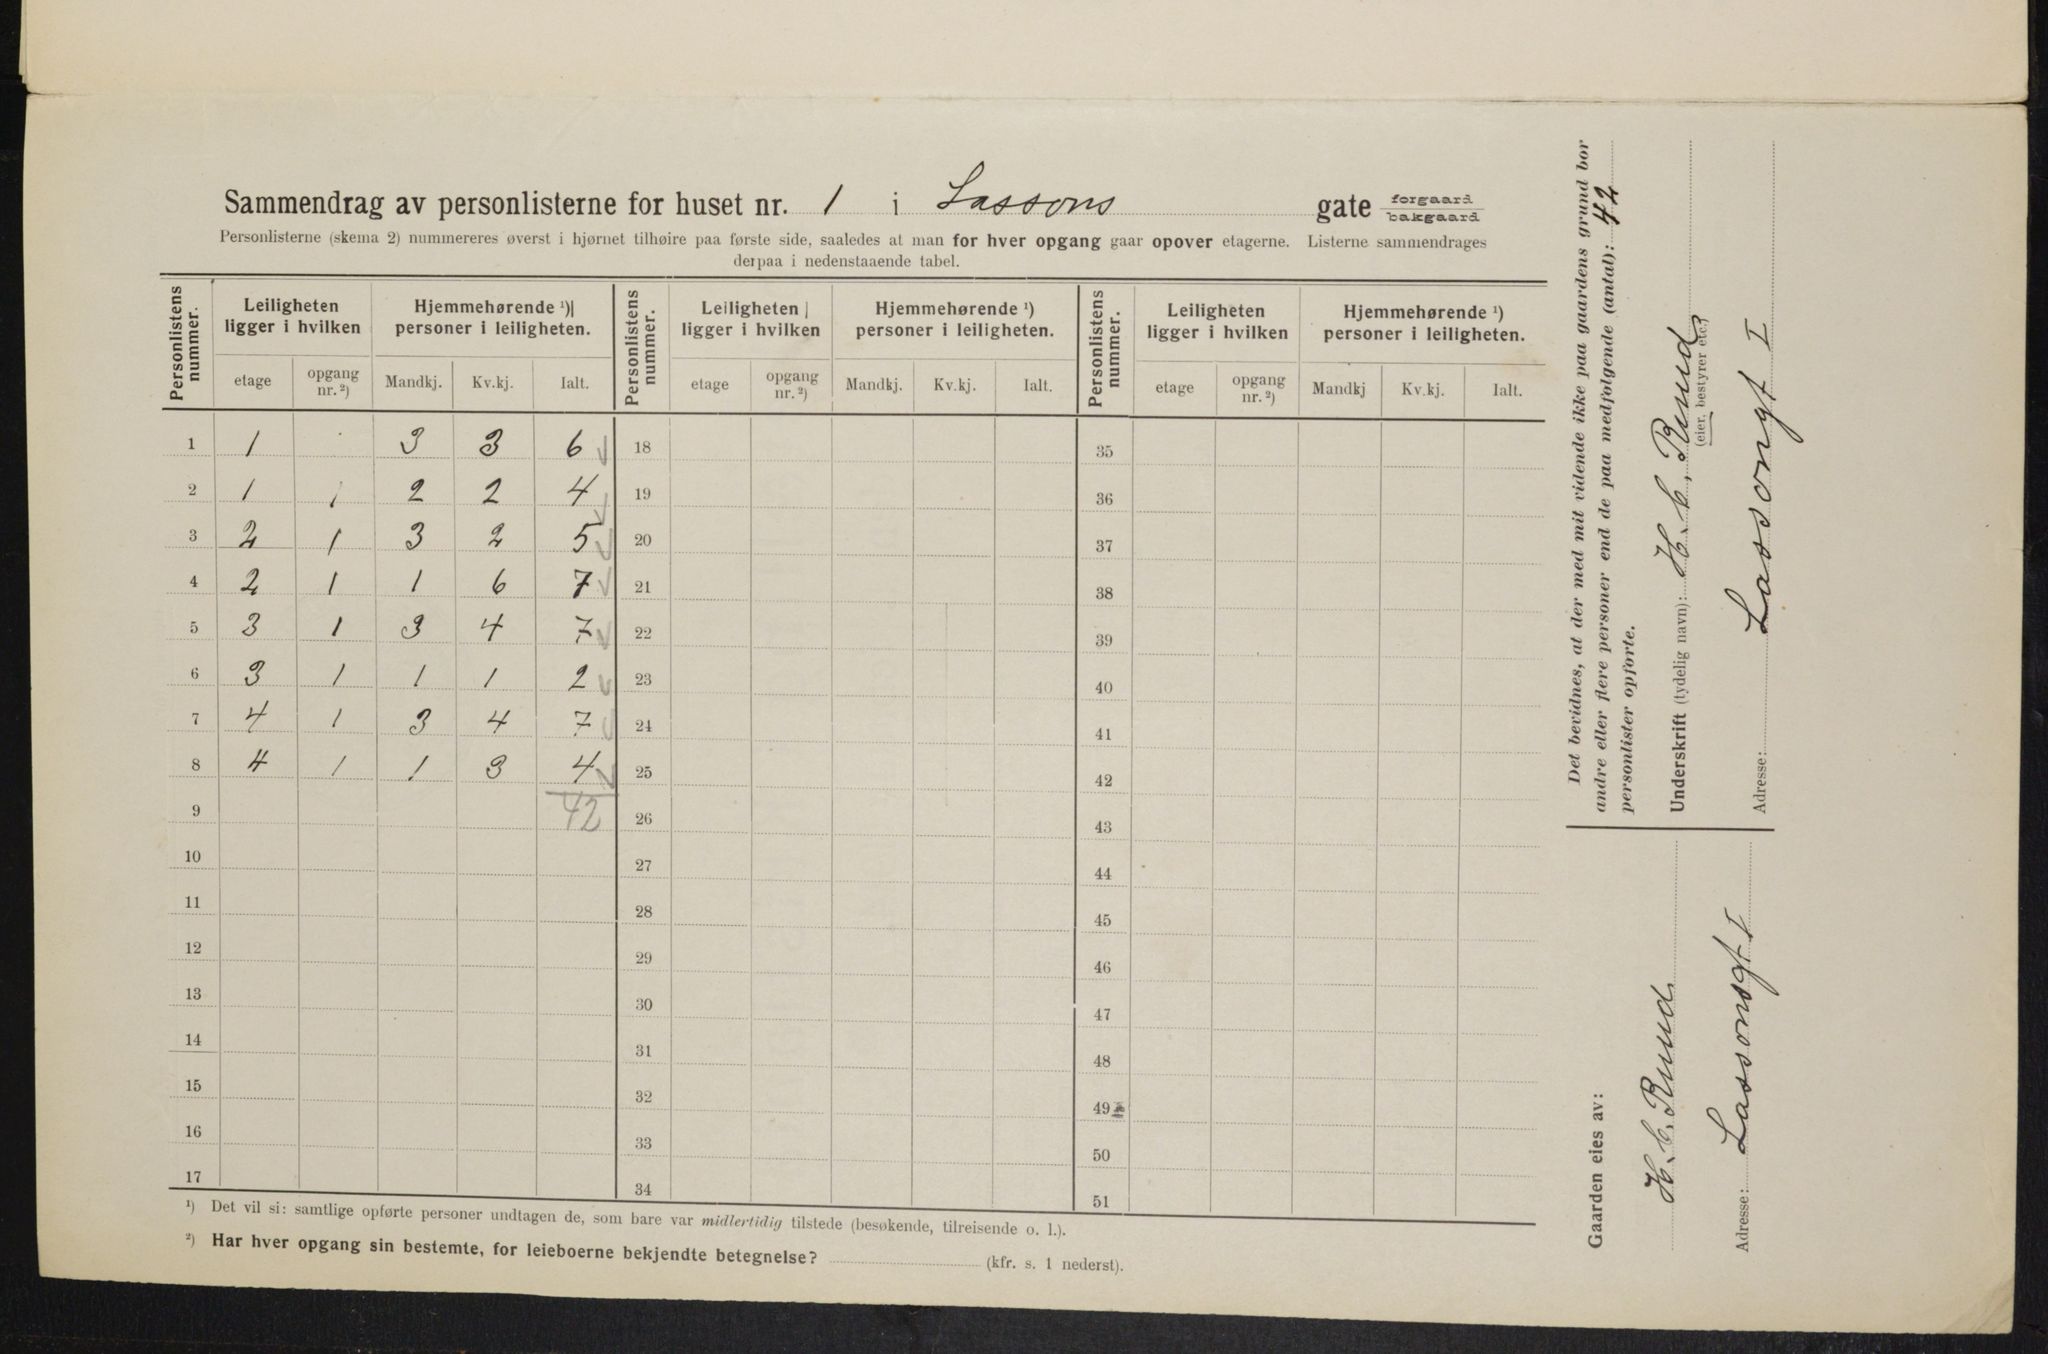 Sammendrag av personlisterne for huset nr. 1 i Lassons gate forgaard bakgaard
Personlisterne (skema 2) nummereres øverst i hjørnet tilhøire paa første side, saaledes at man for hver opgang gaar opover etagerne. Listerne sammendrages
derpaa i nedenstaaende tabel.
Personlistens nummer. Leiligheten ligger i hvilken Hjemmehørende ¹) personer i leiligheten. Personlistens nummer. Leiligheten ligger i hvilken Hjemmehørende ¹) personer i leiligheten. Personlistens nummer. Leiligheten ligger i hvilken Hjemmehørende ¹) personer i leiligheten.
etage opgang nr. ²) Mandkj. Kv.kj. Ialt. etage opgang nr. ²) Mandkj. Kv.kj. Ialt. etage opgang nr. ²) Mandkj Kv.kj. Ialt.
1 1 3 3 6 18 35
2 1 1 2 2 4 19 36
3 2 1 3 2 5 20 37
4 2 1 1 6 7 21 38
5 3 1 3 4 7 22 39
6 3 1 1 1 2 23 40
7 4 1 3 4 7 24 41
8 4 1 1 3 4 25 42
9 42 26 43
10 27 44
11 28 45
12 29 46
13 30 47
14 31 48
15 32 49
16 33 50
17 34 51
¹) Det vil si: samtlige opførte personer undtagen de, som bare var midlertidig tilstede (besøkende, tilreisende o. l.).
²) Har hver opgang sin bestemte, for leieboerne bekjendte betegnelse? (kfr. s. 1 nederst).
Det bevidnes, at der med mit vidende ikke paa gaardens grund bor
andre eller flere personer end de paa medfølgende (antal): 42
personlister opførte.
Underskrift (tydelig navn): H. C. Ruud
(eier, bestyrer etc.)
Adresse: Lassonsgt I
Gaarden eies av:
H. C. Ruud
Adresse: Lassonsgt I